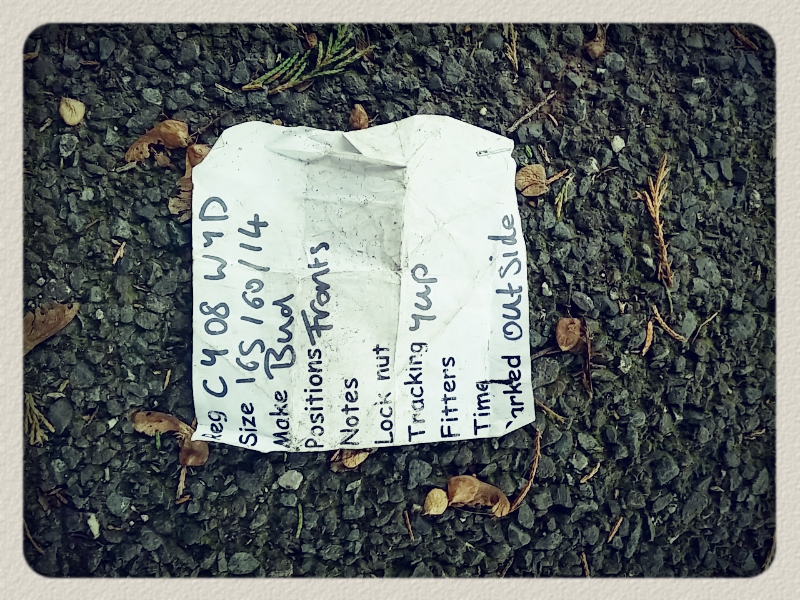 Reg CY08 WYD
Size 165/60/14
Make Bud
Positions Fronts
Notes
Lock nut
Tracking yup
Fitters
Time
arked Outside